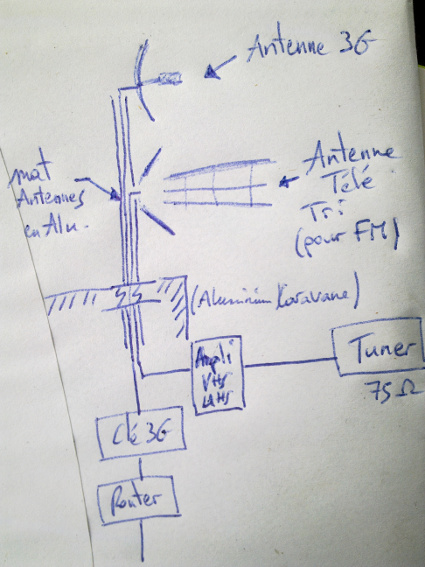 Antenne 3G
mat
Antennes
en Alu.
Antenne
Télé
Tri
(pour FM)
(Aluminium Caravane)
Ampli
VHS
UHS
Tuner
75 Ω
Clé 3G
Router